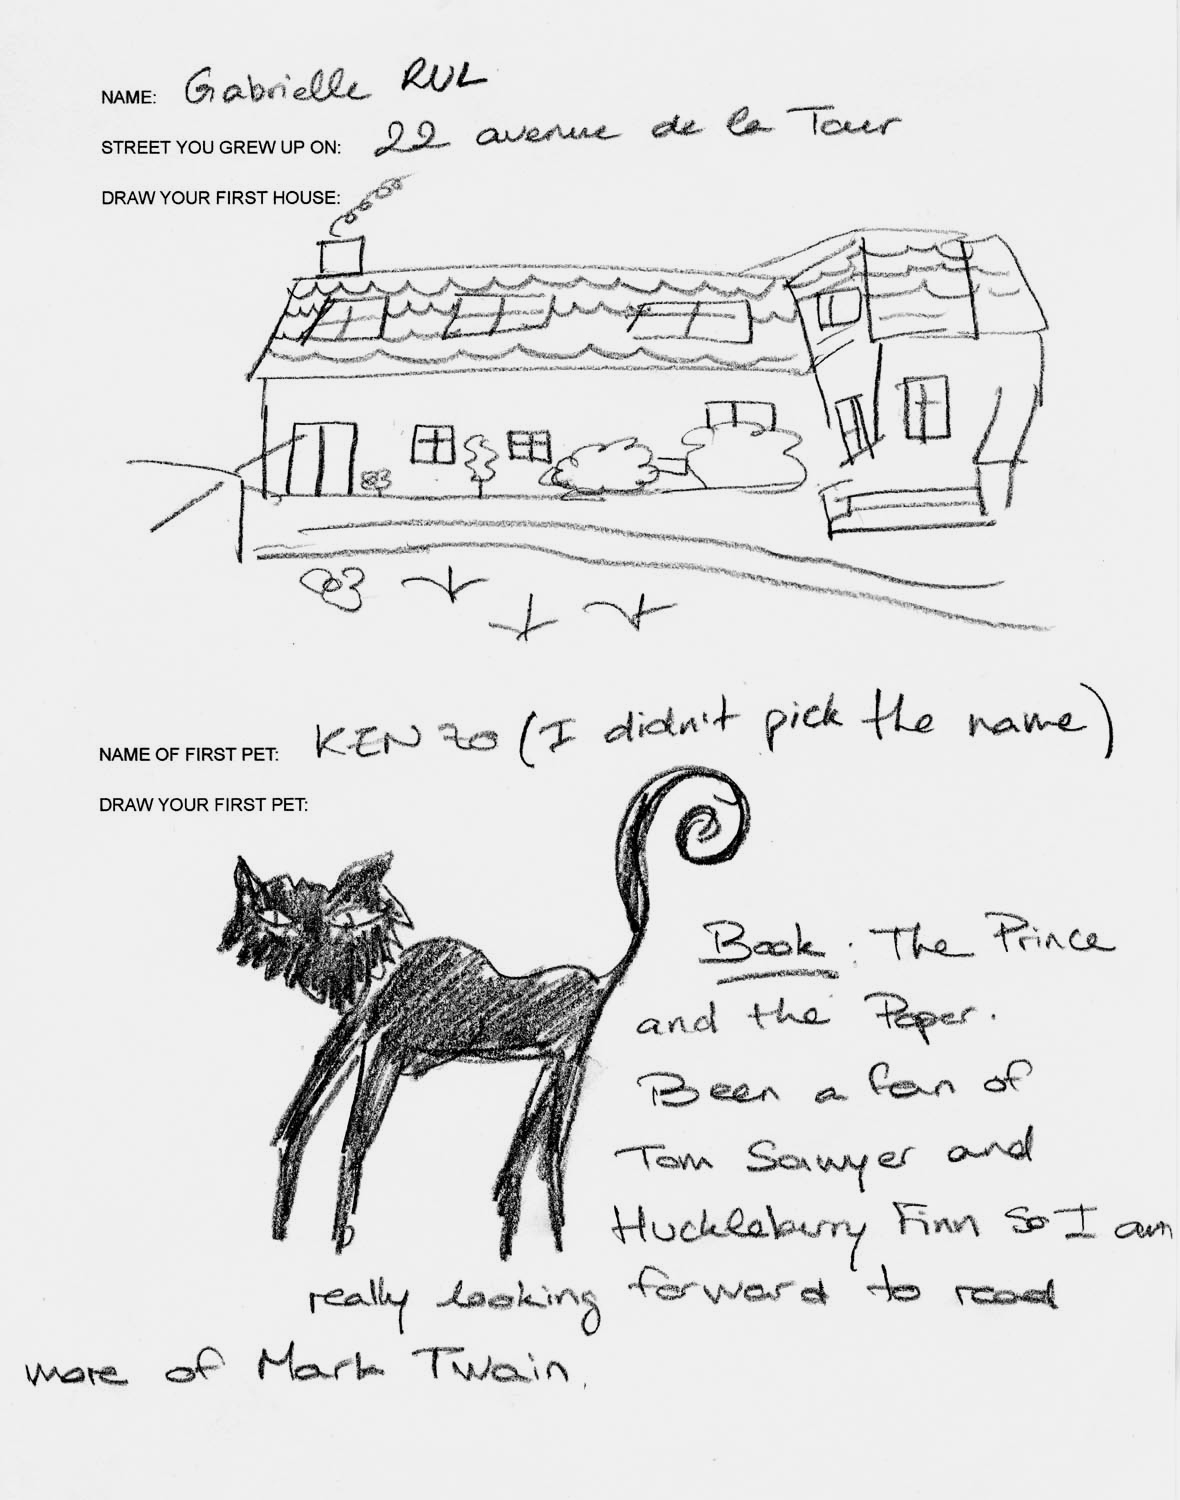 NAME: Gabrielle RUL
STREET YOU GREW UP ON: 22 avenue de la Tour
DRAW YOUR FIRST HOUSE:
NAME OF FIRST PET: KENZO (I didn't pick the name)
DRAW YOUR FIRST PET:
Book: The Prince
and the Paper.
Been a fan of
Tom Sawyer and
Huckleberry Finn so I am
really looking forward to read
more of Mark Twain.